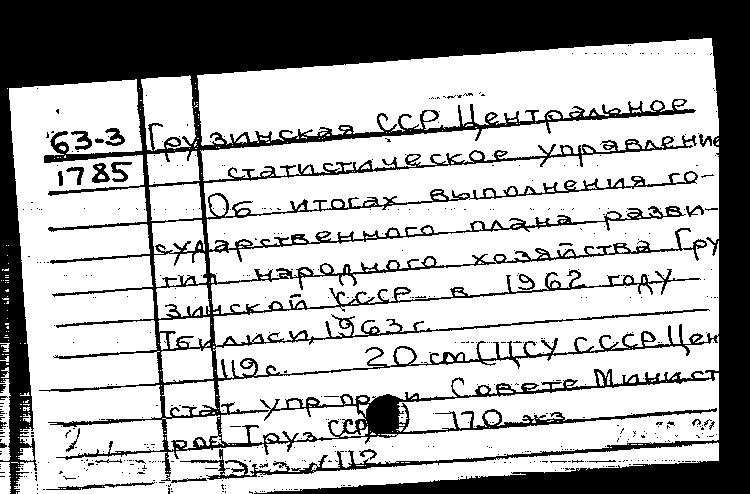 63-3 Грузинская ССР. Центральное
1785 статистическое управление
Об итогах выполнения го-
сударственного плана разви-
тия народного хозяйства Гру
зинской СССР в 1962 году
Тбилиси, 1963 г.
119 с. 20 см (ЦСУ СССР. Цен
стат. упр. при Совете Минист
ров Груз. ССР) 170 экз
Экз. N 112